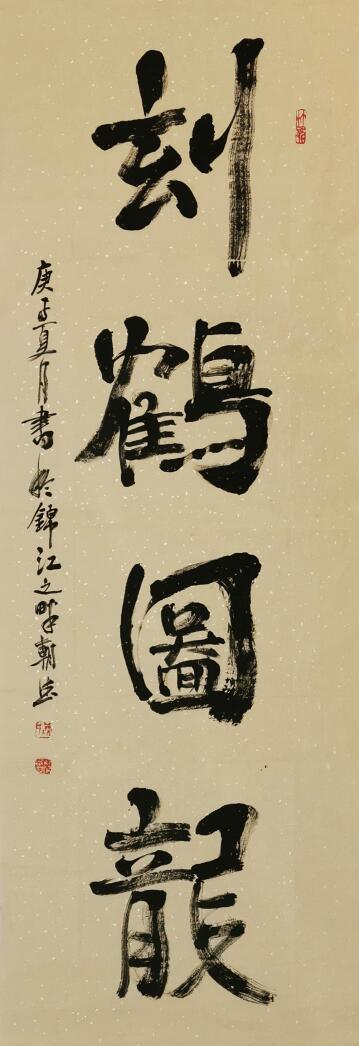 刻鶴圖龍
庚子夏月書於錦江之畔朝